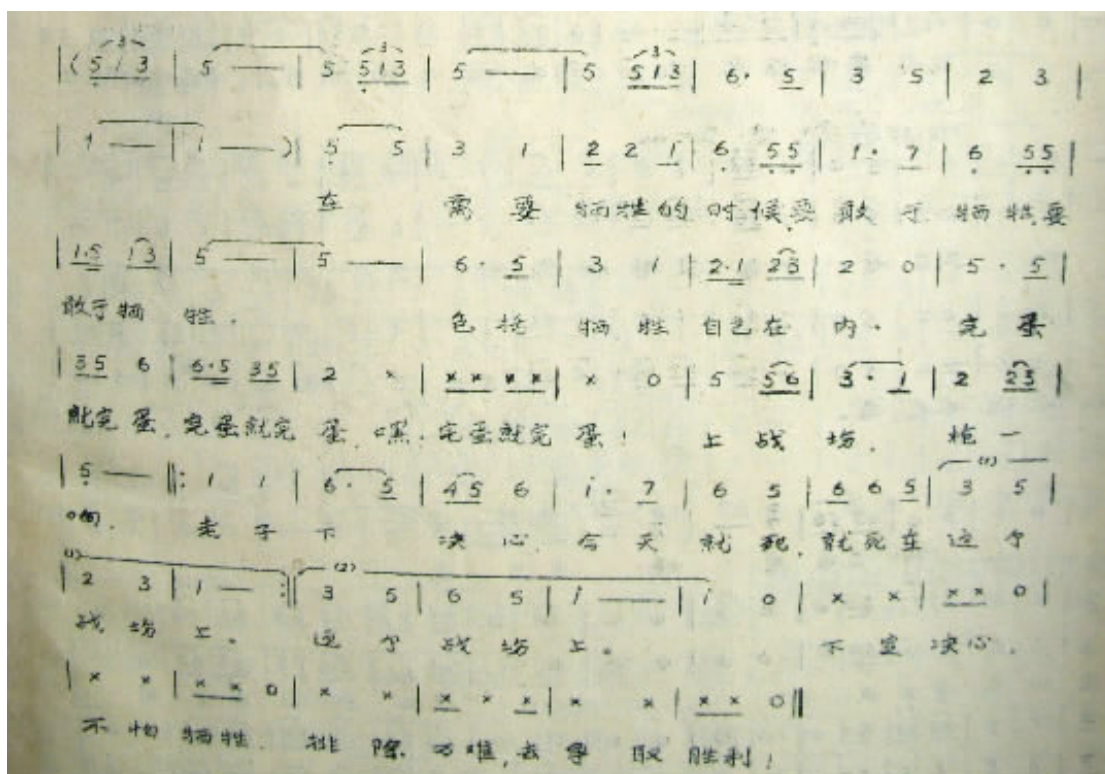 |( 5 1 3 | 5 — — | 5 5 1 3 | 5 — — | 5 5 1 3 | 6 · 5 | 3 5 | 2 3 |
| 1 — | 1 — )| 5 5 | 3 1 | 2 2 1 | 6 · 5 5 | 1 · 7 | 6 5 5 |
在 需 要 牺牲的 时候要 敢 于 牺牲,要
| 1·5 1 3 | 5 — | 5 — | 6 · 5 | 3 1 | 2·1 2 3 | 2 0 | 5 · 5 |
敢于牺 牲. 包 括 牺 牲 自己在 内. 完 蛋
| 3 5 6 | 6·5 3 5 | 2 × | × × × × | × 0 | 5 5 6 | 3 · 1 | 2 2 3 |
就完 蛋, 完蛋就完 蛋, 嘿, 完蛋就完 蛋! 上 战 场. 枪 一
| 5 — ‖: 1 1 | 6 · 5 | 4 5 6 | i · 7 | 6 5 | 6 6 5 | 3 5 |
响. 老 子 下 决 心, 今 天 就 死, 就死在 这 个
| 2 3 | 1 — :‖ 3 5 | 6 5 | i — | i 0 | × × | × × 0 |
战 场 上. 这 个 战 场 上。 下 定 决心.
| × × | × × 0 | × × | × × × | × × | × × 0 ‖
不 怕 牺牲. 排 除 万难,去 争 取 胜利!